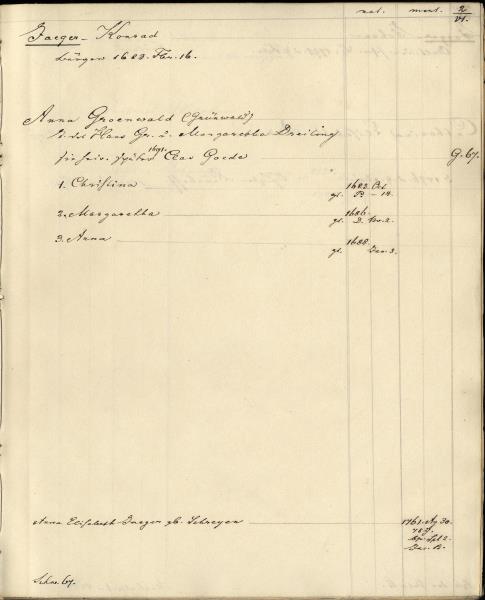 nat. mort. 2/VI.
Jaeger - Konrad
bürger 1682. Febr. 16.
Anna Groenwald (Grünwald)
T. des Hans Gr. u. Margaretha Dreiling
1691. Claes Goede G. 67.
1. Christina 1683. Oct.
gt. P. - 14.
2. Margaretha 1686.
gt. D. Nov. 2.
3. Anna 1688.
gt. Dec. 3.
Anna Elisabeth Jaeger gb. Schreyer 1761. Ag 30.
78 J.
Spt 2.
Schre. 67.